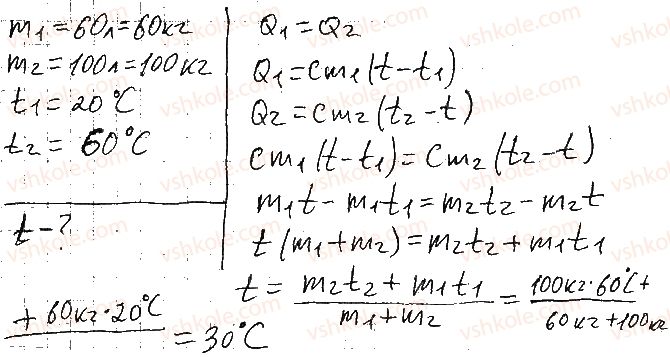 m₁ = 60л = 60кг
m₂ = 100л = 100кг
t₁ = 20°C
t₂ = 60°C
t - ?
Q₁ = Q₂
Q₁ = cm₁(t - t₁)
Q₂ = cm₂(t₂ - t)
cm₁(t - t₁) = cm₂(t₂ - t)
m₁t - m₁t₁ = m₂t₂ - m₂t
t(m₁ + m₂) = m₂t₂ + m₁t₁
t = (m₂t₂ + m₁t₁)/(m₁ + m₂) = (100кг·60°C +)/(60кг + 100кг)
+ 60кг·20°C = 30°C
vshkole.com